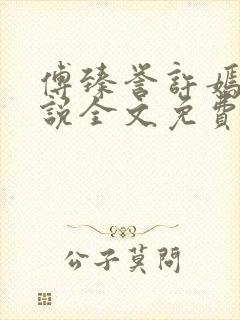 傅臻誉許嫣
說全文免費
公子莫問